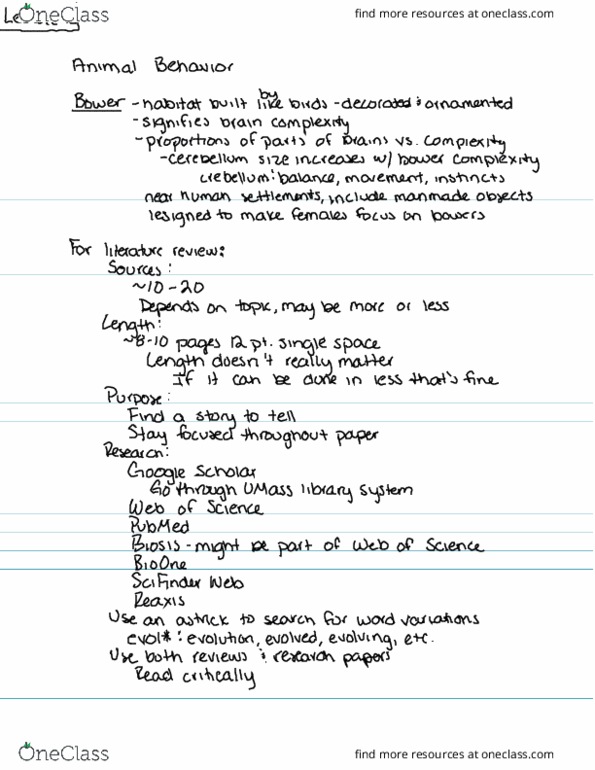 Le
OneClass
find more resources at oneclass.com
Animal Behavior
Bower - habitat built by like birds - decorated & ornamented
- signifies brain complexity
- proportions of parts of brains vs. complexity
- cerebellum size increases w/ bower complexity
crebellum: balance, movement, instincts
near human settlements, include manmade objects
lesigned to make females focus on bowers
For literature review:
Sources:
~10-20
Depends on topic, may be more or less
Length:
~8-10 pages 12 pt. single space
Length doesn't really matter
If it can be done in less that's fine
Purpose:
Find a story to tell
Stay focused throughout paper
Research:
Google Scholar
Go through UMass library system
Web of Science
PubMed
Biosis - might be part of Web of Science
BioOne
SciFinder Web
Reaxis
Use an astrick to search for word variations
evol*: evolution, evolved, evolving, etc.
Use both reviews & research papers
Read critically
OneClass
find more resources at oneclass.com